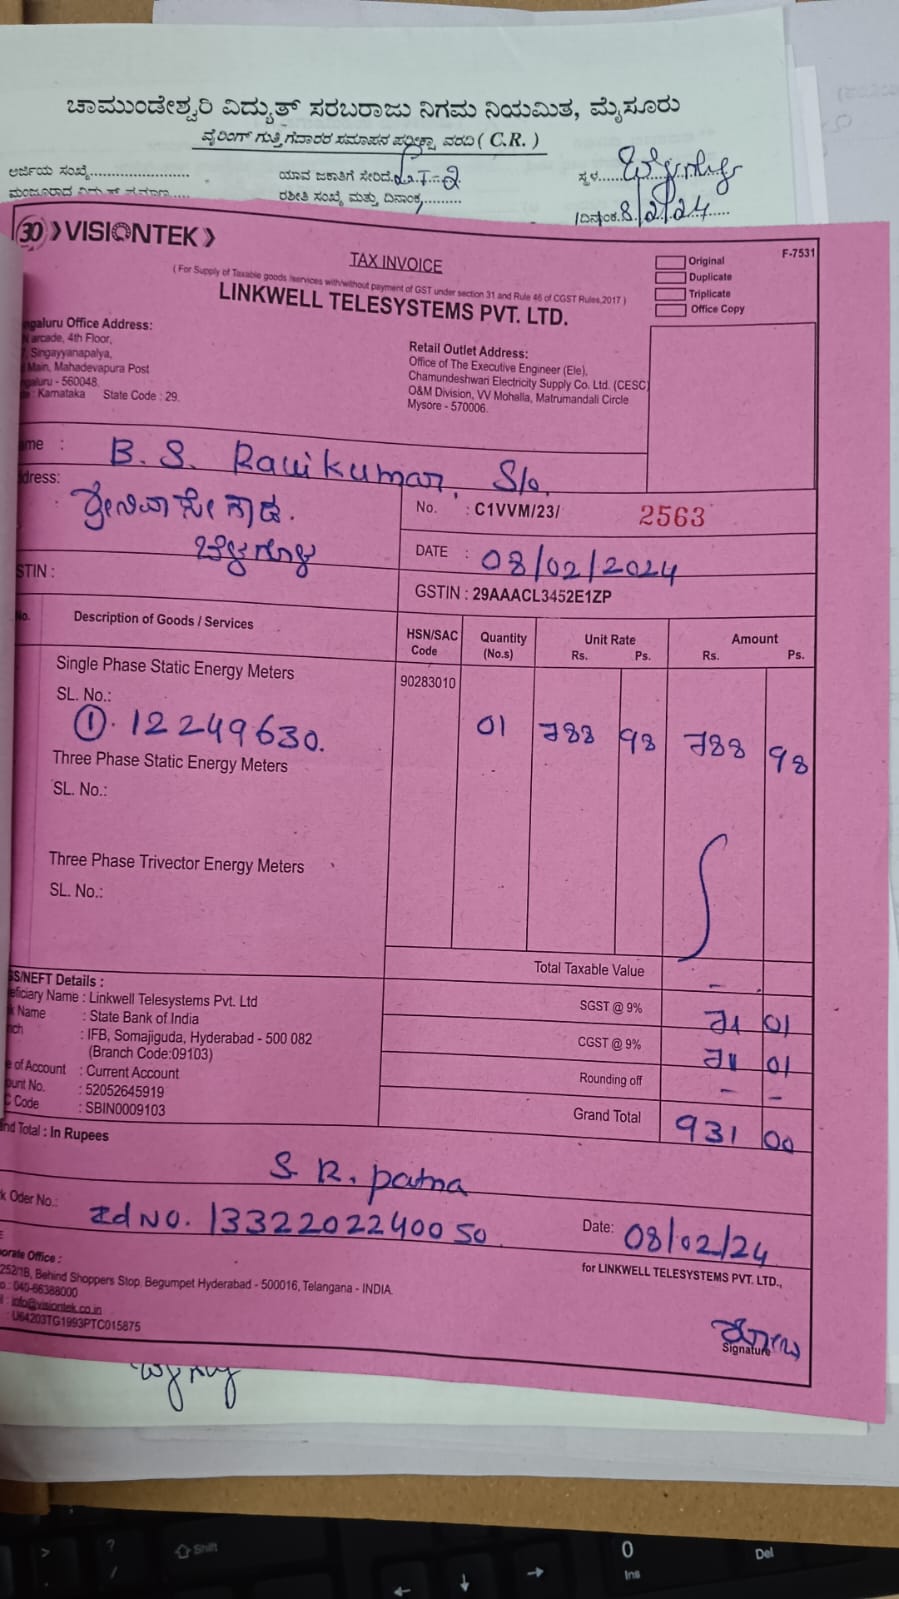 ಚಾಮುಂಡೇಶ್ವರಿ ವಿದ್ಯುತ್ ಸರಬರಾಜು ನಿಗಮ ನಿಯಮಿತ, ಮೈಸೂರು
ವೈರಿಂಗ್ ಗುತ್ತಿಗೆದಾರರ ಸಮಾಪನ ಪರೀಕ್ಷಾ ವರದಿ ( C.R. )
ಅರ್ಜಿಯ ಸಂಖ್ಯೆ........................ ಯಾವ ಜಕಾತಿಗೆ ಸೇರಿದೆ. LT-2 ಸ್ಥಳ......
ರಶೀತಿ ಸಂಖ್ಯೆ ಮತ್ತು ದಿನಾಂಕ.......... ದಿನಾಂಕ. 8/2/24......
30 VISIONTEK
TAX INVOICE
F-7531
( For Supply of Taxable goods /services with/without payment of GST under section 31 and Rule 46 of CGST Rules,2017 )
LINKWELL TELESYSTEMS PVT. LTD.
Original
Duplicate
Triplicate
Office Copy
Office Address:
arcade, 4th Floor,
Singayyanapalya,
Main, Mahadevapura Post
- 560048.
: Karnataka State Code : 29.
Retail Outlet Address:
Office of The Executive Engineer (Ele),
Chamundeshwari Electricity Supply Co. Ltd. (CESC)
O&M Division, VV Mohalla, Matrumandali Circle
Mysore - 570006.
: B. S. Ravikumar, S/o.
ಶ್ರೀನಿವಾಸೇಗೌಡ.
ಬೆಳ್ಳಗೊಳ
No. : C1VVM/23/ 2563
DATE : 08/02/2024
GSTIN : 29AAACL3452E1ZP
Description of Goods / Services HSN/SAC Code Quantity (No.s) Unit Rate Rs. Ps. Amount Rs. Ps.
Single Phase Static Energy Meters 90283010
SL. No.:
①. 12249630. 01 788 98 788 98
Three Phase Static Energy Meters
SL. No.:
Three Phase Trivector Energy Meters
SL. No.:
Total Taxable Value - .
SGST @ 9% 71 01
CGST @ 9% 71 01
Rounding off - -
Grand Total 931 00
/NEFT Details :
Name : Linkwell Telesystems Pvt. Ltd
Name : State Bank of India
: IFB, Somajiguda, Hyderabad - 500 082
(Branch Code:09103)
of Account : Current Account
No. : 52052645919
Code : SBIN0009103
Total : In Rupees
S R. patna
Oder No.: Id NO. 1332202240050
Date: 08/02/24
for LINKWELL TELESYSTEMS PVT. LTD.,
Office :
252/1B, Behind Shoppers Stop. Begumpet Hyderabad - 500016, Telangana - INDIA.
: 040-66388000
: info@visiontek.co.in
: U64203TG1993PTC015875
Signature
Shift
0
Ins
Del